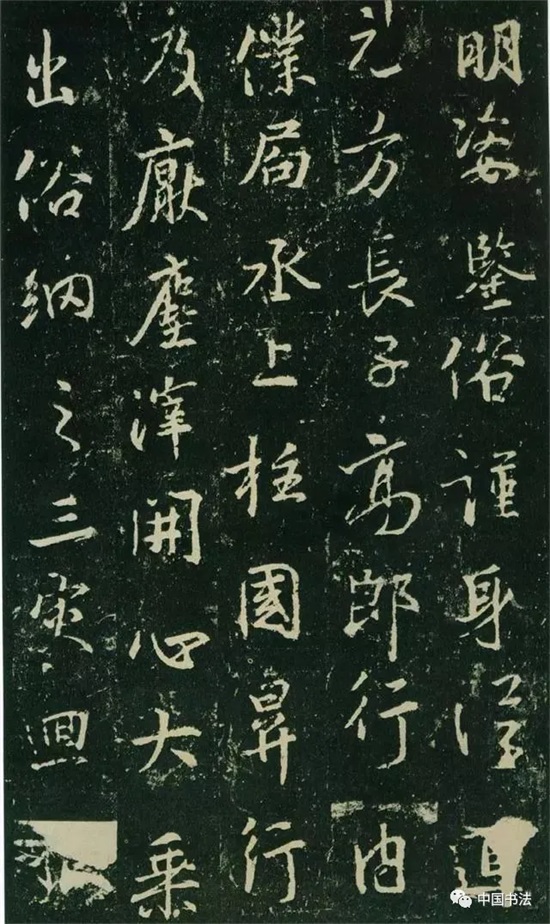 明姿鑒俗謹身追
元方長子高郎行内
僕局丞上柱國昇行
及厭塵滓開心大乘
出俗網之三灾迴
中国书法